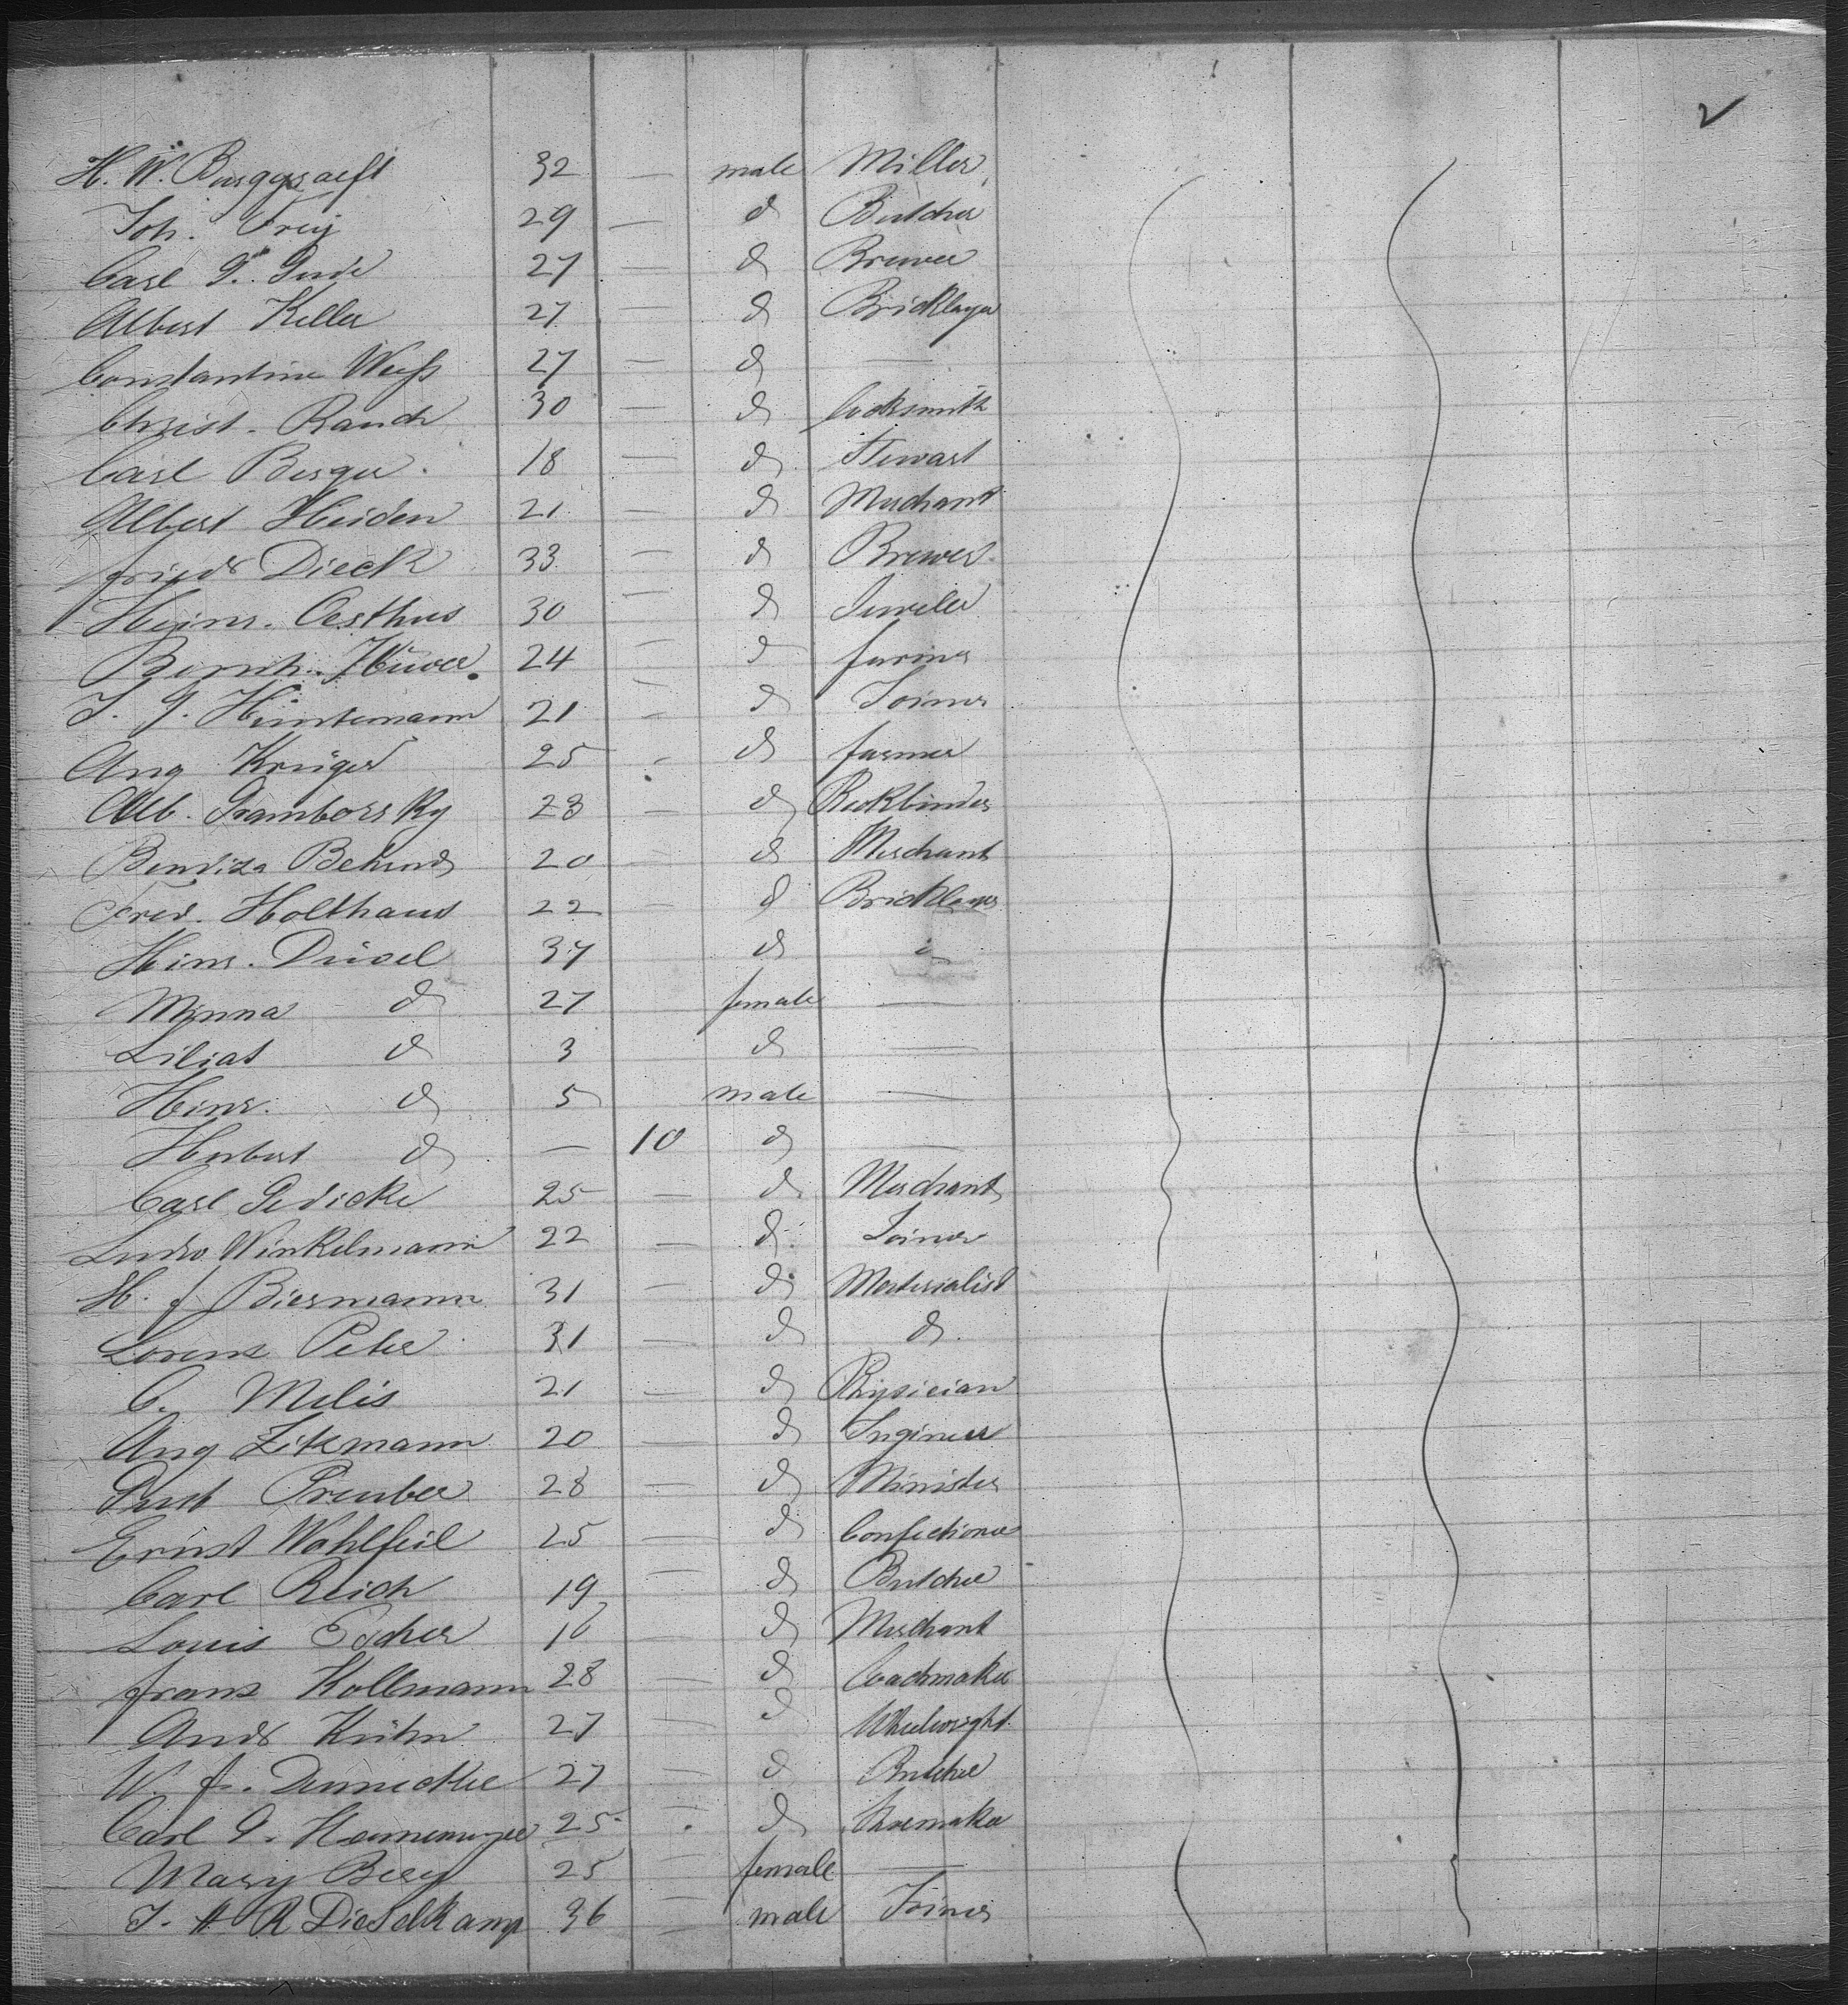 2
H. W. Burggraeft 32 — male Miller
Joh. Frey 29 — do Butcher
Carl G. Gude 27 — do Brewer
Albert Keller 27 — do Bricklayer
Constantine Weiss 27 — do —
Christ. Rauch 30 — do Locksmith
Carl Berger 18 — do Stewart
Albert Heiden 21 — do Merchant
Friedr Dieck 33 — do Brewer
Heinr. Oesthus 30 — do Juweler
Bernh. Hüwer 24 — do farmer
J. G. Hüntemann 21 — do Joiner
Aug Krüger 25 — do farmer
Alb. Gramborsky 23 — do Bookbinder
Bendiza Behrend 20 — do Merchant
Fred. Holthaus 22 — do Bricklayer
Hinr. Düvel 37 do do
Minna do 27 female —
Liliat do 3 do —
Hinr. do 5 male —
Herbert do — 10 do —
Carl Gedicke 25 — do Merchant
Ludw Winkelmann 22 — do Joiner
H. f Biermann 31 — do Materialist
Lorenz Peter 31 — do do
C. Melis 21 — do Physician
Aug Zitzmann 20 — do Ingineer
Gust 28 — do Minister
Ernst Wohlfeil 25 — do Confectioner
Carl Reich 19 — do Butcher
Louis Escher 16 — do Merchant
franz Kollmann 28 — do Coachmaker
Andr Kühn 27 — do Wheelwright
W. fr. Dennecke 27 — do Butcher
Carl G. 25 — do Shoemaker
Mary Berg 25 — female —
J. H R Dieselkamp 36 — male Joiner